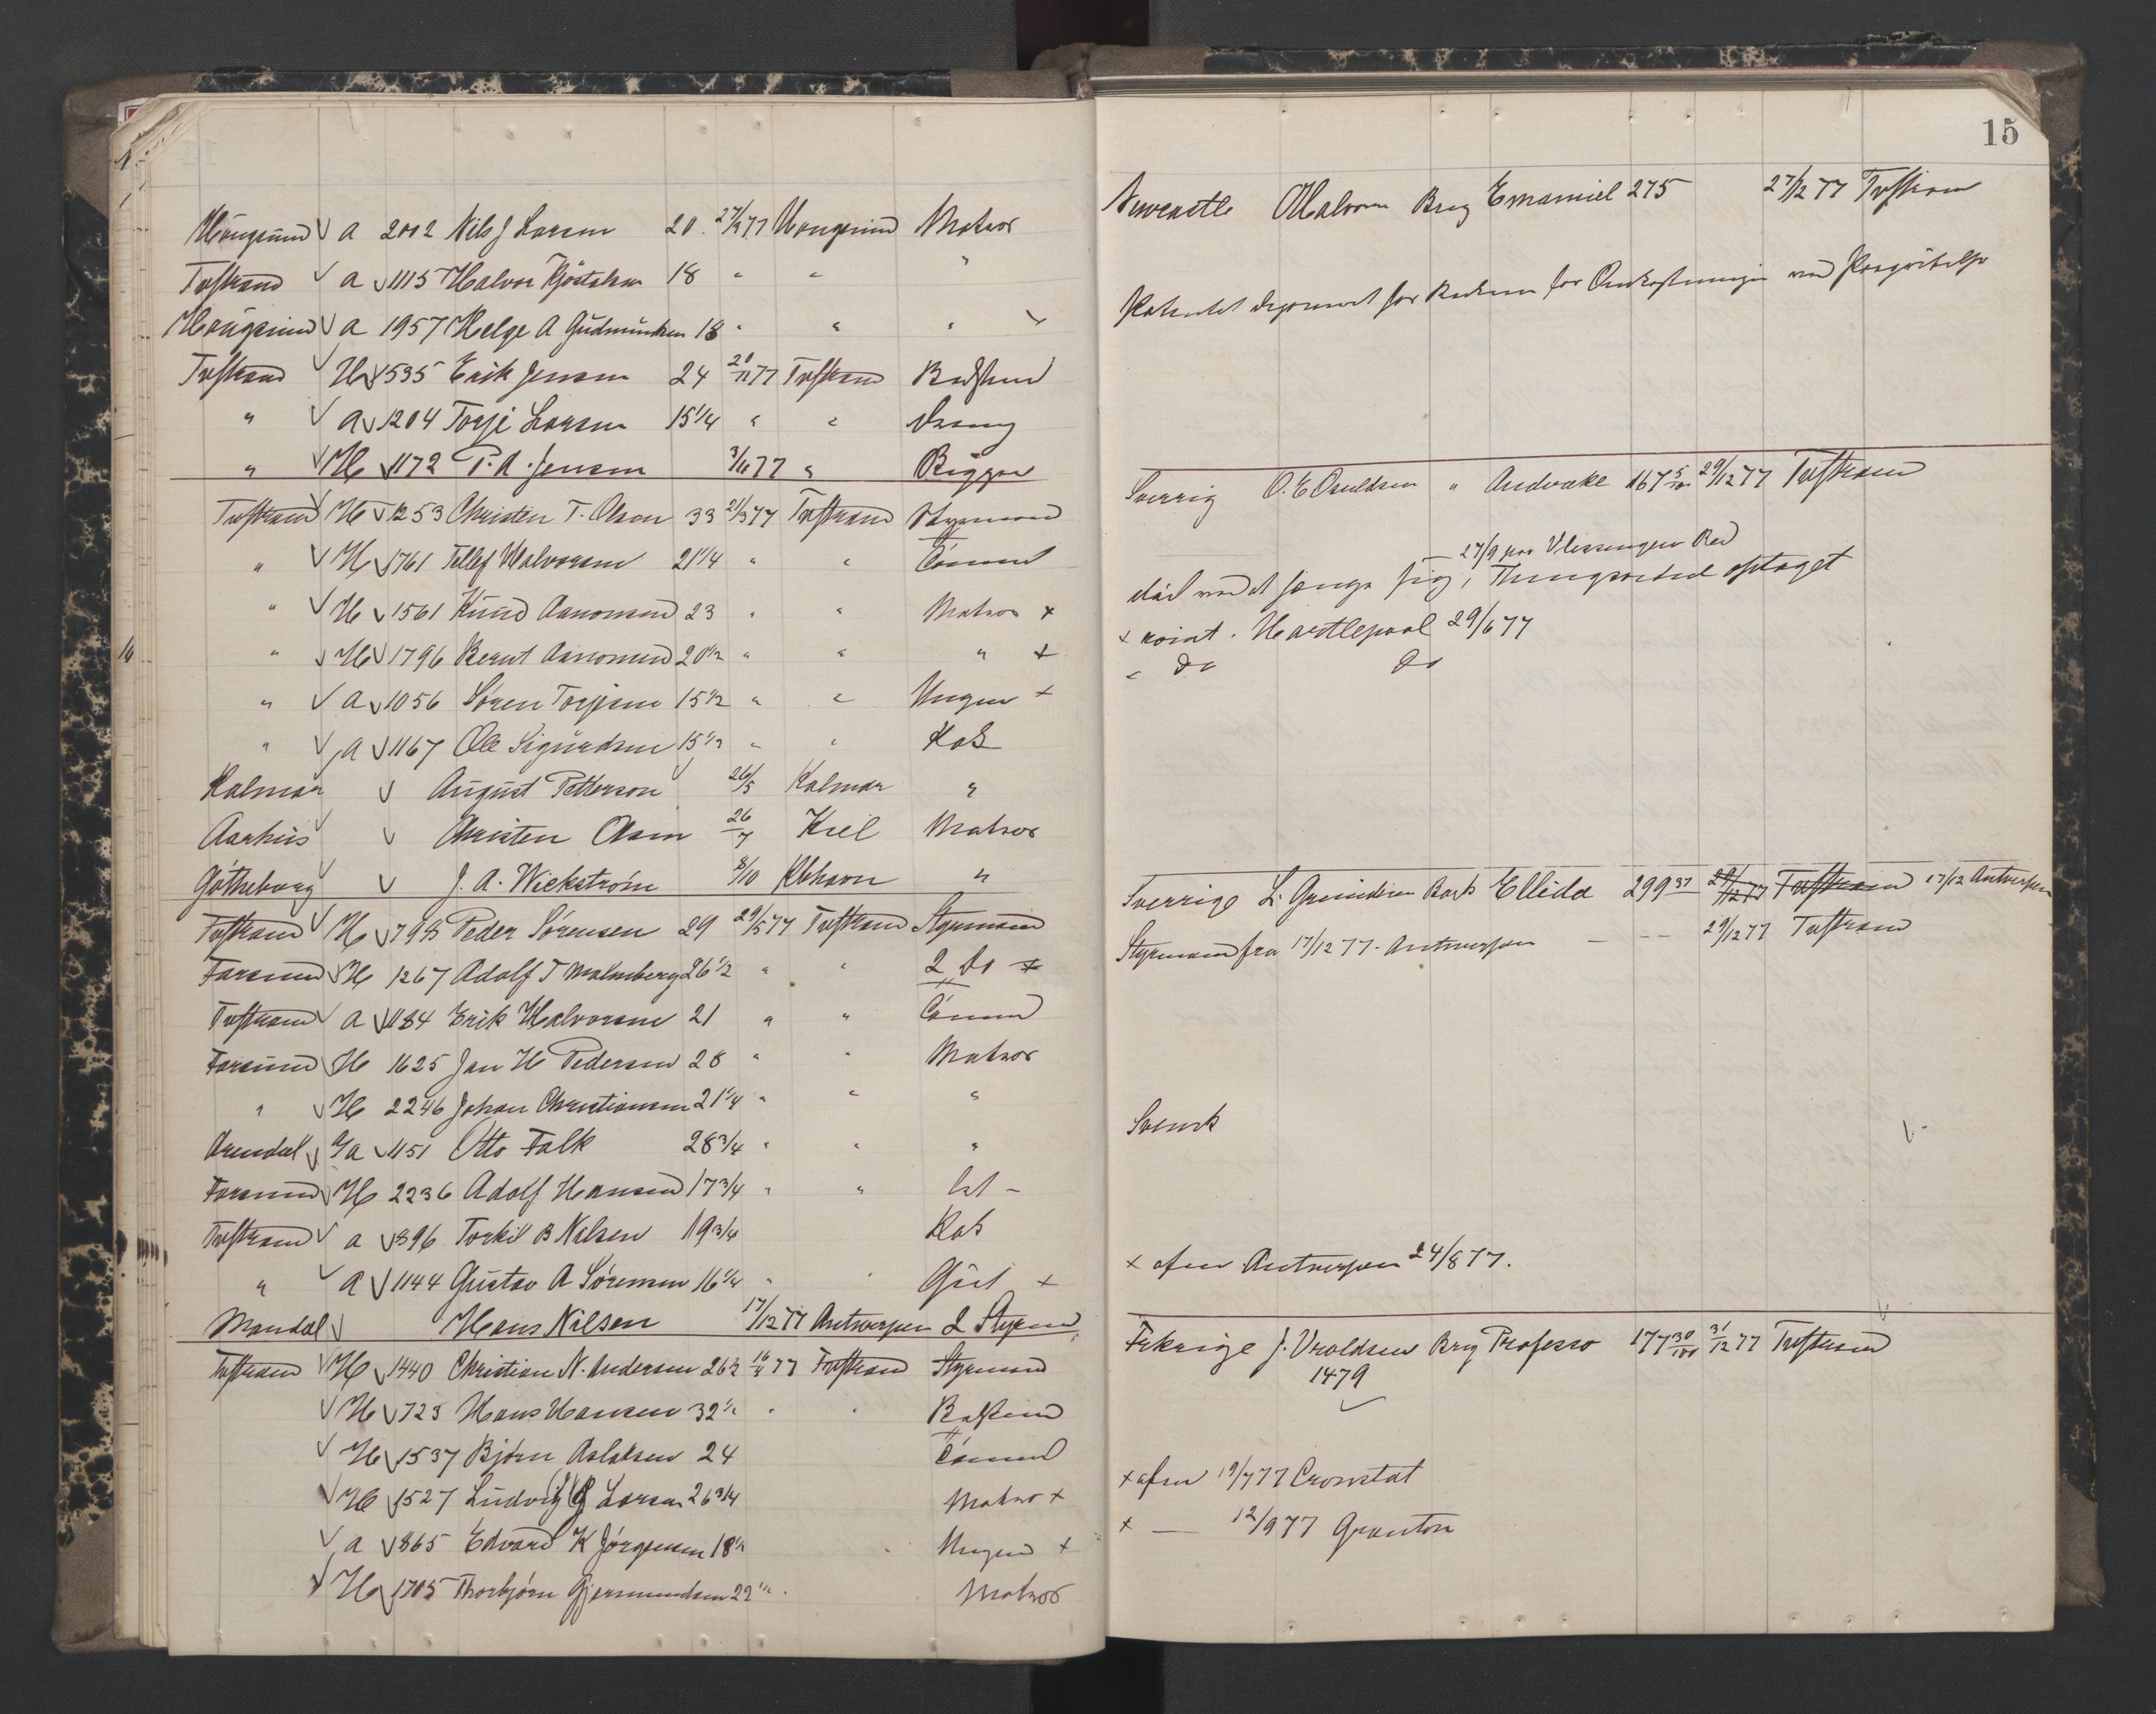 15
Haugsund a 2002 Nils J Larsen 20 27/3 77 Haugsund Matros
Tvestrand a 1115 Halvor 18 " " "
Haugsund a 1957 Helge A Gudmundsen 18 " " "
Tvestrand H 535 Erik Jensen 24 20/11 77 Tvestrand
" a 1204 Torje Larsen 15 1/4 " "
" H 1172 P. A. Jensen 3/11 77 "
Tvestrand H 1253 Christen T. Olsen 33 21/3 77 Tvestrand Styrmand
" H 1761 Tellef Halvorsen 21 1/4 " " Tømmd
" H 1561 Knud Aanonsen 23 " " Matros x
" H 1796 Bernt Aanonsen 20 1/2 " " " x
" a 1056 Søren Torjesen 15 1/2 " " Ungm x
" a 1167 Ole Sigurdsen 15 1/2 " " Kok
Kalmar August Petterson 26/5 Kalmar "
Aarhus Christen Olsen 26/7 Kiel Matros
Gøtheborg J. A. Wickstrøm 8/10 Kbhavn "
Tvestrand H 798 Peder Sørensen 29 29/5 77 Tvestrand Styrmand
Farsund H 1267 Adolf T Malmberg 26 1/2 " " 2 do x
Tvestrand a 1184 Erik Halvorsen 21 " " Tømmd
Farsund H 1625 Jan H Pedersen 28 " " Matros
" H 2246 Johan Christiansen 21 1/4 " " "
Arendal a 1151 Otto Falk 28 3/4 " " "
Farsund H 2236 Adolf Hansen 17 3/4 " "
Tvestrand a 896 Torkil B Nilsen 19 3/4 Kok
" a 1144 Gustav A Sørensen 16 1/4 " Gut x
Mandal Hans Nilsen 17/12 77 Antwerpen 2 Styrmd
Tvestrand H 1440 Christian N. Andersen 26 1/2 16/4 77 Tvestrand Styrmand
H 723 Hans Hansen 32 1/2 " "
H 1537 Bjørn Aslaksen 24 Tømmd
H 1527 Ludvig G Larsen 26 3/4 Matros x
a 865 Edvard K Jørgensen 18 1/2 Ungmd x
H 1705 Thorbjørn Gjermundsen 22 1/2 " Matros
Newcastle O Halvorsen Brig Emanuel 275 27/12 77 Tvestrand
for for ved
Sverrig O. E " Andvake 167 5/100 29/12 77 Tvestrand
27/9 paa Vlissingen Red
ved at sig, optaget
x Hartlepool 29/6 77
" do do
Sverrige L. Bark Ellida 299 37 29/12 77 Tvestrand 17/12 Antwerpen
Styrmand fra 17/12 77. Antwerpen — — 29/12 77 Tvestrand
Svensk
x afm Antwerpen 24/8 77.
J. Uroldsen Brig Professor 177 30/100 31/12 77 Tvestrand
1479
x afm 19/7 77 Cronstat
x — 12/9 77 Granton